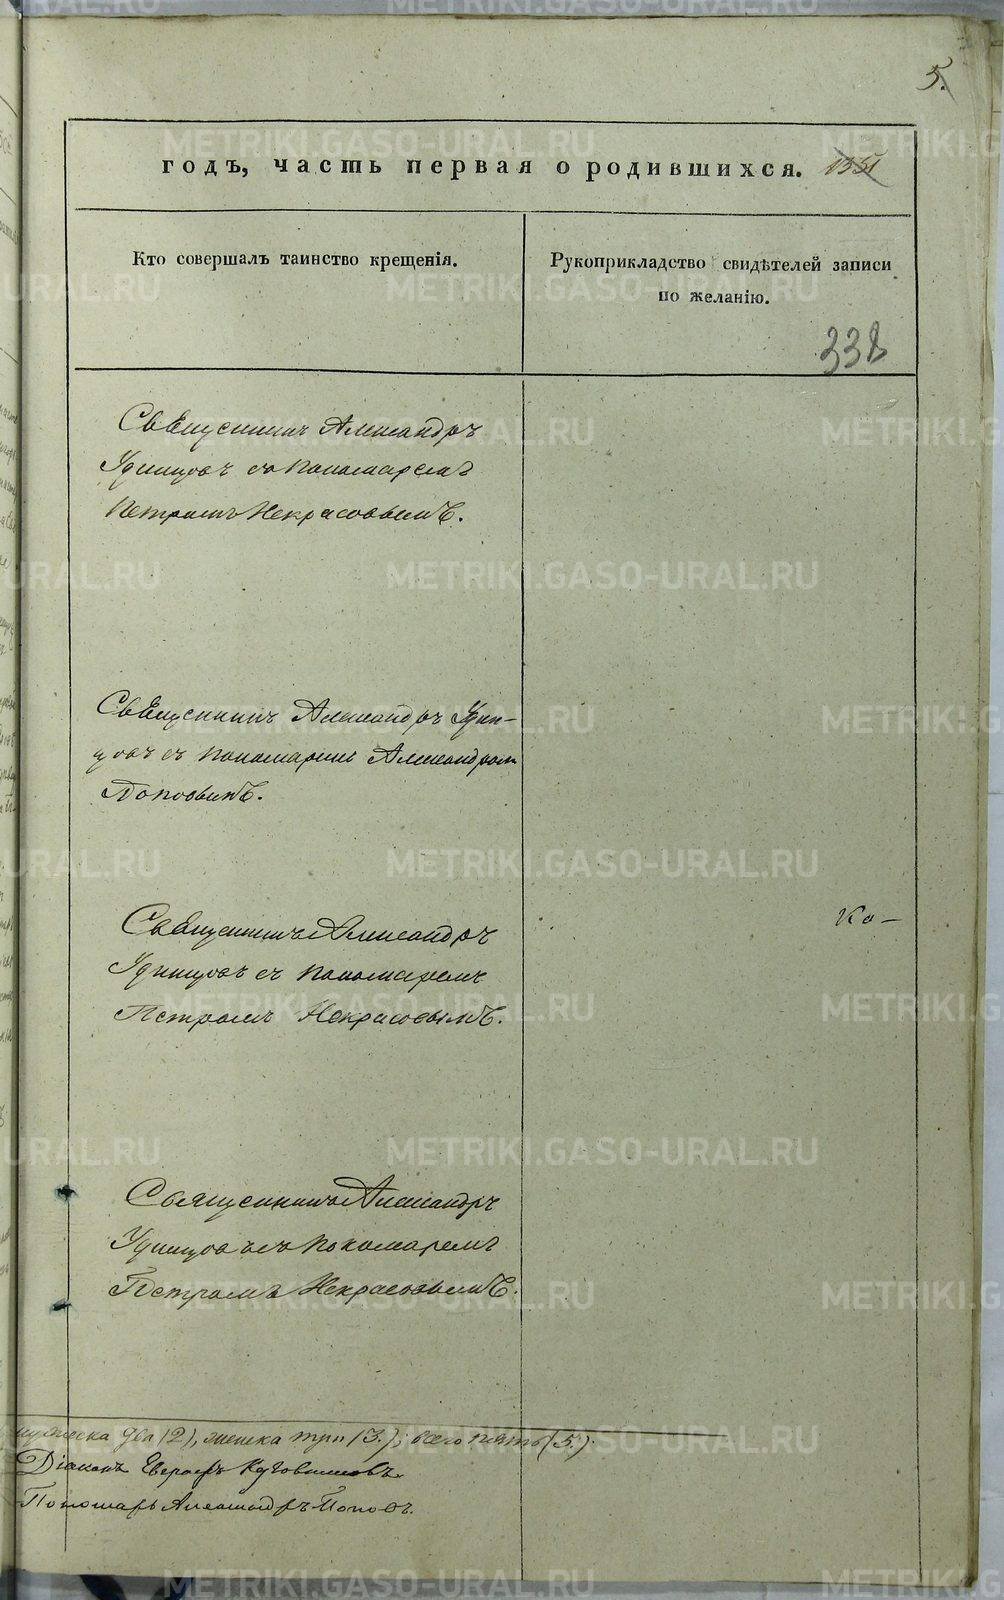 5.
годъ, часть первая о родившихся. 1351
Кто совершалъ таинство крещенія.
Рукоприкладство свидѣтелей записи
по желанію.
338
Священникъ Александръ
Удинцовъ съ пономаремъ
Петромъ Некрасовымъ.
Священникъ Александръ Удин-
цовъ съ пономаремъ Александромъ
Поповымъ.
Священникъ Александръ
Удинцовъ съ пономаремъ
Петромъ Некрасовымъ.
Ко-
Священникъ Александръ
Удинцовъ съ пономаремъ
Петромъ Некрасовымъ.
мужеска два (2), женска три (3.); всего пять (5.).
Діаконъ
Пономарь Александръ Поповъ.
METRIKI.GASO-URAL.RU